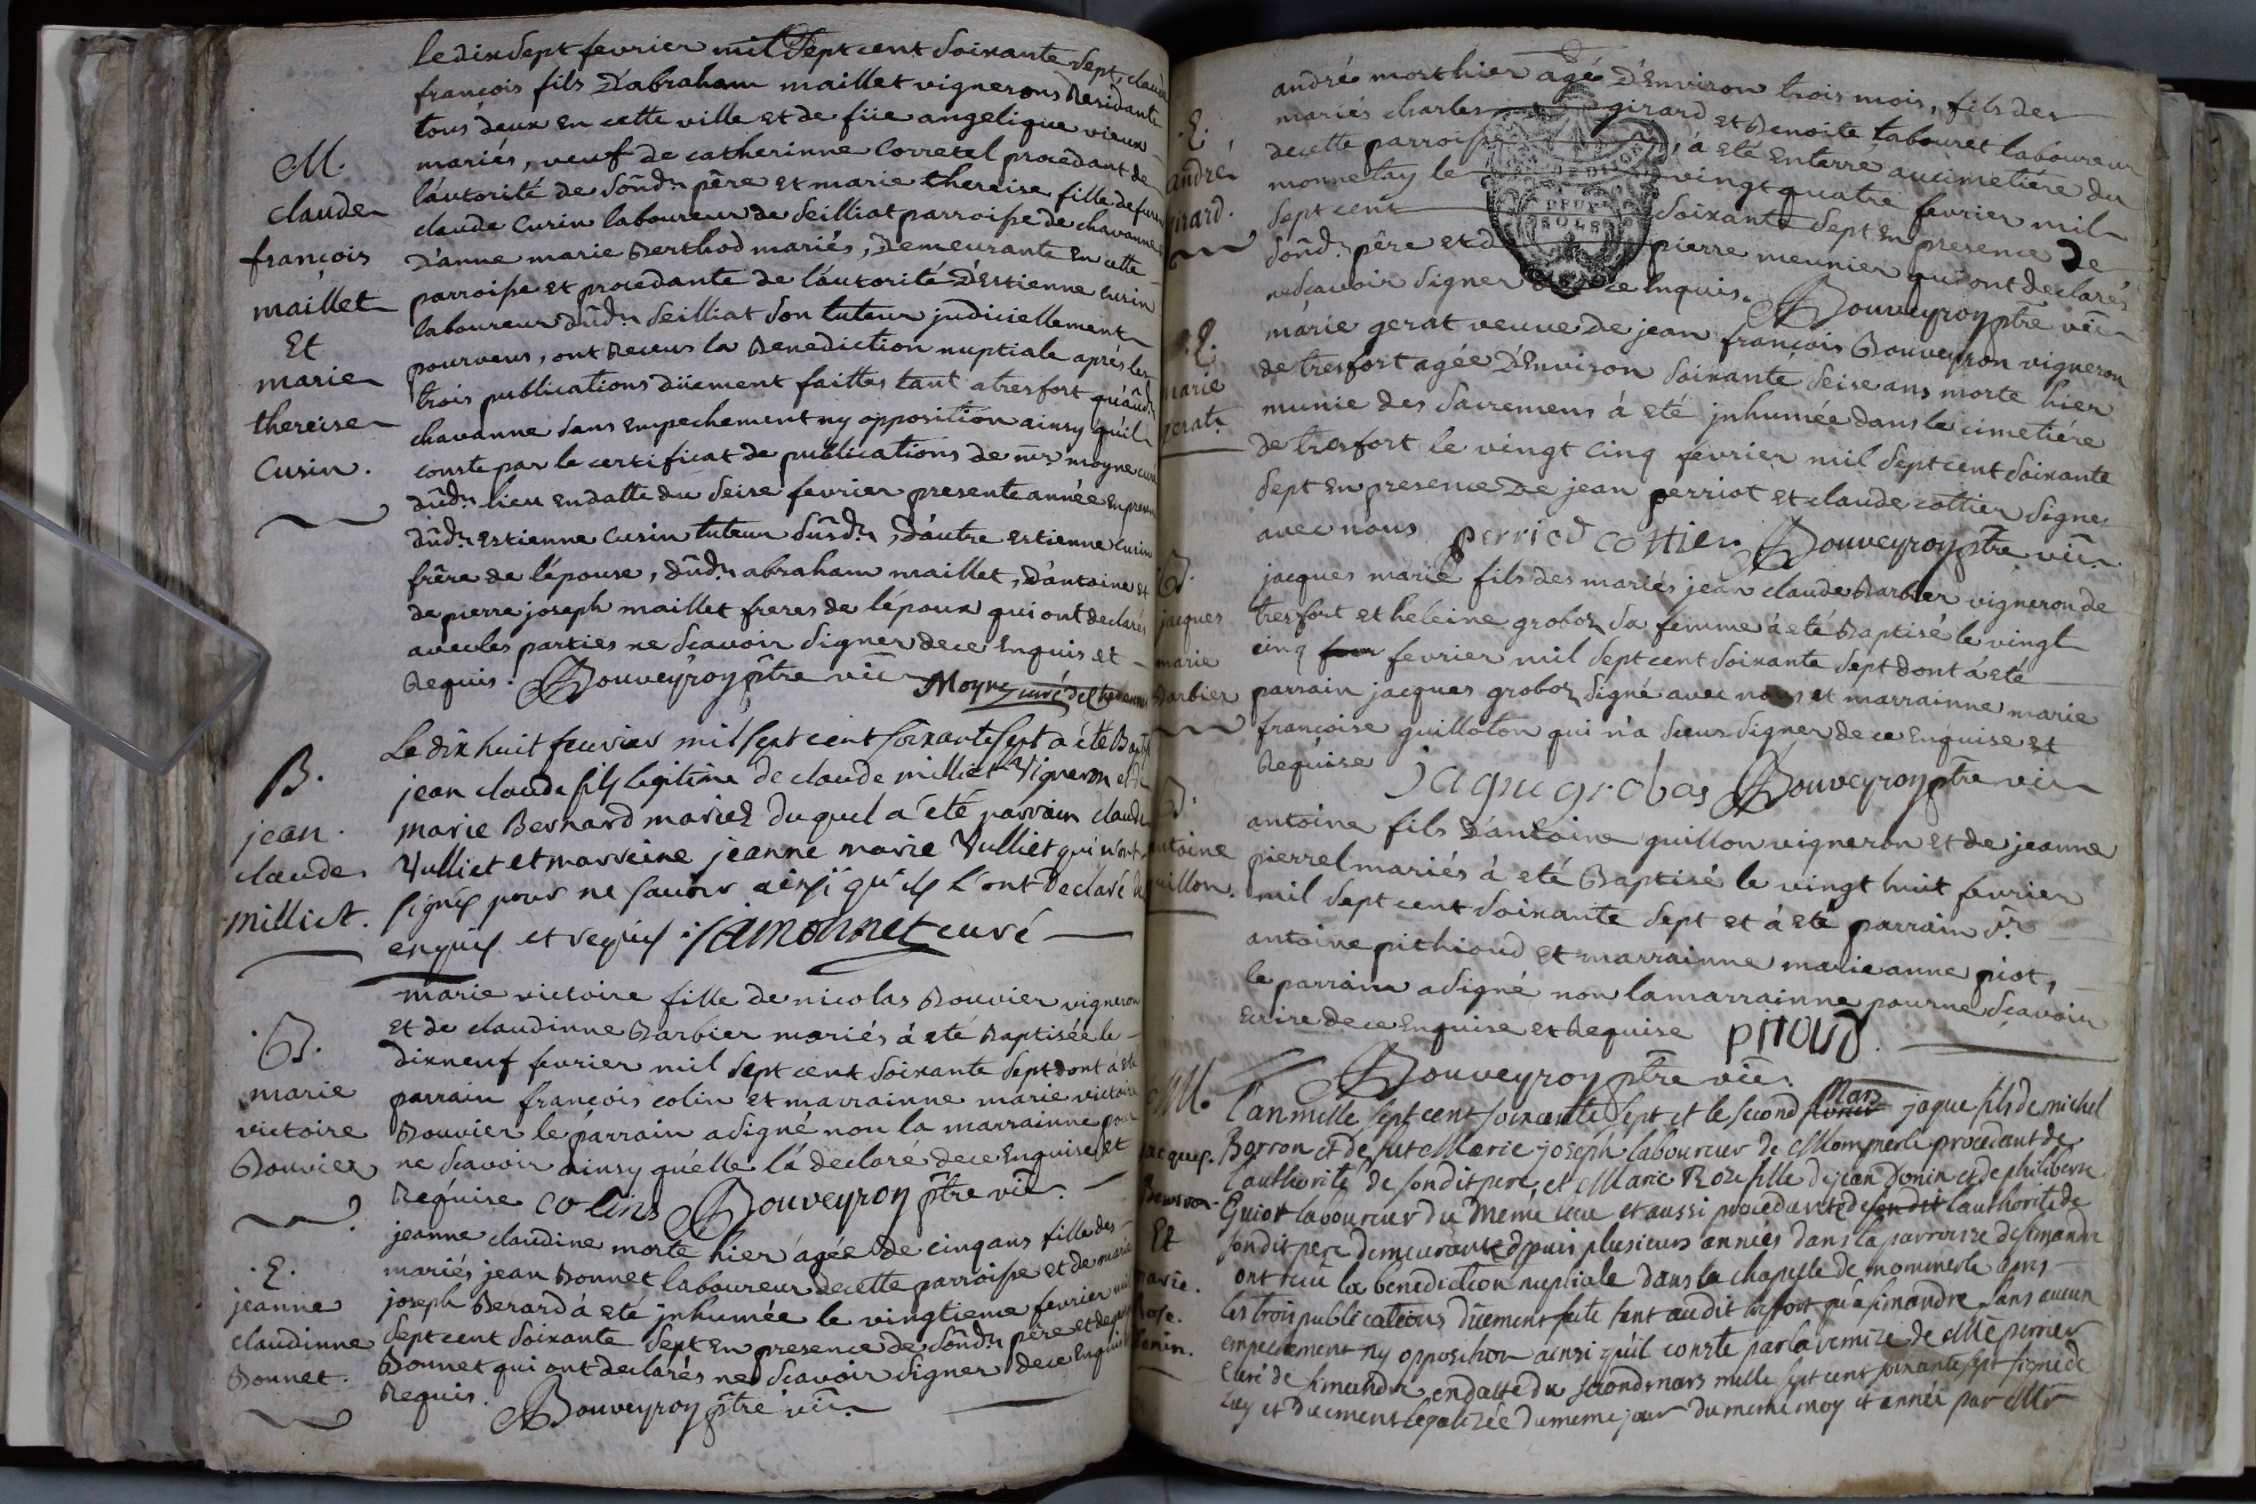 le dix sept fevrier mil sept cent soixante sept, claude
françois fils d'abraham maillet vignerons Residants
tous deux en cette ville et de füe angelique vieux
mariés, veuf de catherinne Corretel procedant de
l'autorité de sond.t pêre et marie thereise fille de furent
claude Curin laboureur de seilliat parroisse de chavanne
d'anne marie Berthod mariés, demeurante en cette
parroisse et procedante de l'autorité d'Estienne curin
laboureur dud.t seilliat son tuteur judiciellement
pourveus, ont Receus la Benediction nuptiale aprés les
trois publications düement faittes tant a tresfort qu'aud.t
chavanne sans empechement ny opposition ainsy quil
conste par le certificat de publications de mr moyne curé
dud.t lieu en datte du seise fevrier presente année en presence
dud.t estienne curin tuteur susd.t, d'autre estienne curin
frêre de l'épouse, dud.t abraham maillet, d'antoine et
de pierre joseph maillet freres de l'époux qui ont declarés
avec les parties ne scavoir signer de ce enquis et
Requis. Bouveyron ptre vic
Moyne curé de Chavannes
M.
claude
françois
maillet
Et
marie
thereise
Curin.
Le dix huit feuvrier mil sept cent soixante sept a été Baptisé
jean claude fils legitime de claude milliet Vigneron et de
marie Bernard mariez duquel a été parrain claude
Vulliet et marreine jeanne marie Vulliet qui n'ont
signés pour ne savoir ainsi qu'ils l'ont declaré de
enquis et requis. Jamonnet curé
B.
jean
claude
milliet.
marie victoire fille de nicolas Bouvier vigneron
et de claudinne Barbier mariés á eté Baptisée le
dixneuf fevrier mil sept cent soixante sept dont á eté
parrain françois colin et marrainne marie victoire
Bouvier le parrain a signé non la marrainne pour
ne scavoir ainsy qu'elle l'á declaré de ce Enquise et
Requise colins Bouveyron ptre vic.
B.
marie
victoire
Bouvier
jeanne claudine morte hier agée de cinq ans fille des
mariés jean Bonnet laboureur de cette parroisse et de marie
joseph Berard á eté jnhumée le vingtieme fevrier mil
sept cent soixante sept en presence de sond.t pêre et de
Bonnet qui ont declarés ne scavoir signer de ce Enquis
Requis. Bouveyron ptre vic.
.E.
jeanne
claudinne
Bonnet.
andré mort hier agé d'Environ trois mois, fils des
mariés charles girard et Benoite labouret laboureur
de cette parroisse, á eté Enterré au cimetiére du
monnetay le vingt quatre fevrier mil
sept cent soixante sept en presence de
sond.t pêre et de pierre meunier qui ont declarés
ne scavoir signer de ce Enquis. Bouveyron ptre vic
DEUX
SOLS
.E.
andré
girard.
marie gerat veuve de jean françois Bouveyron vigneron
de tresfort agée d'Environ soixante seise ans morte hier
munie des sacremens á eté jnhumée dans le cimetiére
de tresfort le vingt cinq fevrier mil sept cent soixante
sept en presence de jean perriot et claude cottier signes
avec nous perriod cottier Bouveyron ptre vic.
.E.
marie
gerat.
jacques marie fils des mariés jean claude Barbier vigneron de
tresfort et heleine groboz sa femme á eté Baptisé le vingt
cinq fevrier mil sept cent soixante sept dont á eté
parrain jacques groboz signé avec nous et marrainne marie
françoise guilloton qui n'a sceus signer de ce Enquise et
Requise jaque grobas Bouveyron ptre vic
B.
jacques
marie
Barbier
antoine fils d'antoine guillon vigneron et de jeanne
pierrel mariés á eté Baptisé le vingt huit fevrier
mil sept cent soixante sept et á eté parrain sr
antoine pithioud et marrainne marie anne piot,
le parrain a signé non la marrainne pour ne scavoir
écrire de ce Enquise et Requise pitoud.
Bouveyron ptre vic.
B.
antoine
guillon.
L'an mille sept cent soixante sept et le second fevrier Mars jaque fils de michel
Borron et de fut Marie joseph laboureur de Mommerle procedant de
l'authorité de son dit pere et Marie Roze fille de jean Donin et de philiberte
Guiot laboureur du même lieu et aussi procedante de son dit l'authorité de
son dit pere demeurante depuis plusieurs années dans la parroisse de simandre
ont recu la benediction nuptiale dans la chapelle de mommerle apres
les trois publications düement faite tant au dit tresfort qu'a simandre sans aucun
empechement ny opposition ainsi qu'il conste par la remize de Mre perrier
Curé de simandre en datte du second mars mille sept cent soixante sept signé de
luy et düement legalizée du meme jour du meme moy et année par Mr
M.
jacques.
Bourron
Et
marie.
Rose.
Donin.